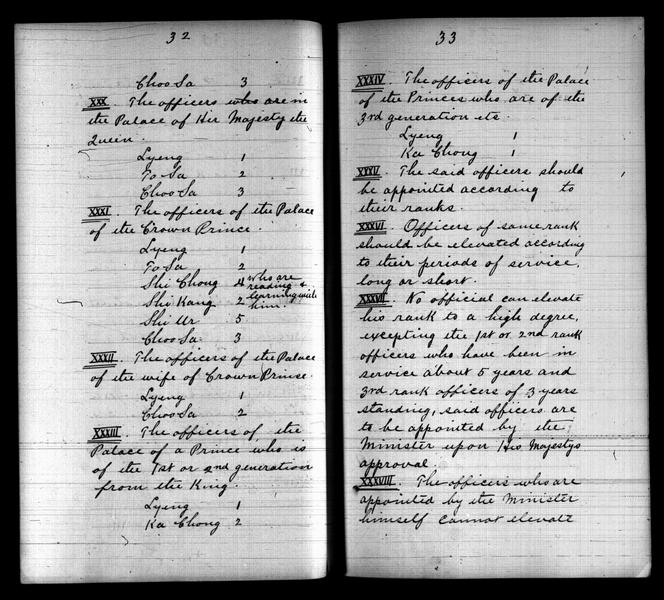 32
Choo Sa 3
XXX. The officers who are in
the Palace of Her Majesty the
Queen.
Lyeng 1
To Sa 2
Choo Sa 3
XXXI. The officers of the Palace
of the Crown Prince.
Lyeng 1
To Sa 2
Shi Chong 4 who are
reading &
Shi Kang 2 learning with
him.
Shi Ur 5
Choo Sa 3
XXXII. The officers of the Palace
of the wife of Crown Prinse.
Lyeng 1
Choo Sa 2
XXXIII. The officers of the
Palace of a Prince who is
of the 1st or 2nd generation
from the King.
Lyeng 1
Ka Chong 2
33
XXXIV. The officers of the Palace
of the Princes who are of the
3rd generation etc
Lyeng 1
Ka Chong 1
XXXV. The said officers should
be appointed according to
their ranks.
XXXVI. Officers of same rank
should be elevated according
to their periods of service,
long or short.
XXXVII. No official can elevate
his rank to a high degree,
excepting the 1st or 2nd rank
officers who have been in
service about 5 years and
3rd rank officers of 3 years
standing; said officers are
to be appointed by the
Minister upon His Majestys
approval.
XXXVIII. The officers who are
appointed by the Minister
himself cannot elevate